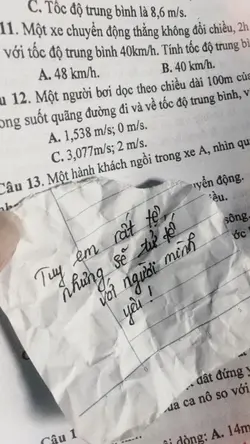 C. Tốc độ trung bình là 8,6 m/s.
11. Một xe chuyển động thẳng không đổi chiều, 2h
với tốc độ trung bình 40km/h. Tính tốc độ trung b
A. 48 km/h.
B. 40 km/h.
u 12. Một người bơi dọc theo chiều dài 100m củ
ong suốt quãng đường đi và về tốc độ trung bình, v
A. 1,538 m/s; 0 m/s.
C. 3,077m/s; 2 m/s.
Câu 13. Một hành khách ngồi trong xe A, nhìn qu
yển động.
Tuy em rất tồ
nhưng sẽ tử tế
với người mình
yêu!
sông
đất đứng y
ủa ca nô so với
Câu 1
i dòng: A. 14m